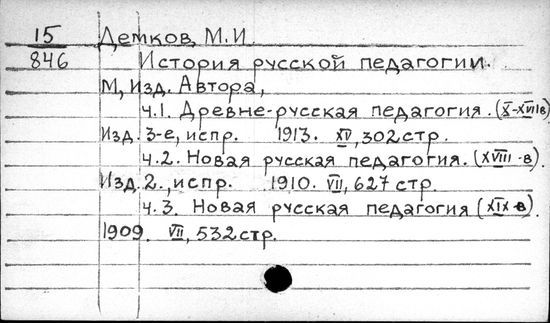 15 Демков, М.И.
846 История русской педагогии.
М, Изд. Автора,
ч.1. Древне-русская педагогия. (X-XVIIв)
Изд. 3-е, испр. 1913. XV, 302 стр.
ч.2. Новая русская педагогия. (XVIII-в).
Изд 2., испр. 1910. VII, 627 стр.
ч.3. Новая русская педагогия (XIX-в)
1909. VII, 532 стр.